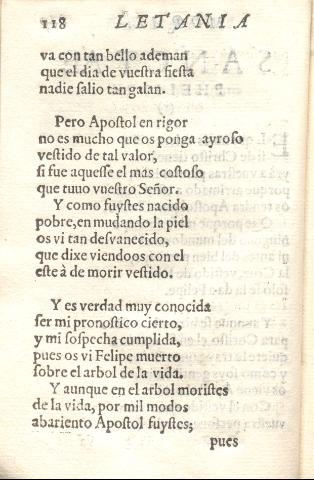 118 LETANIA
va con tan bello ademan
que el dia de vuestra fiesta
nadie salio tan galan.
Pero Apostol en rigor
no es mucho que os ponga ayroso
vestido de tal valor,
si fue aquesse el mas costoso
que tuuo vuestro Señor.
Y como fuystes nacido
pobre, en mudando la piel
os vi tan desvanecido,
que dixe viendoos con el
este à de morir vestido.
Y es verdad muy conocida
ser mi pronostico cierto,
y mi sospecha cumplida,
pues os vi Felipe muerto
sobre el arbol de la vida.
Y aunque en el arbol moristes
de la vida, por mil modos
abariento Apostol fuystes;
pues